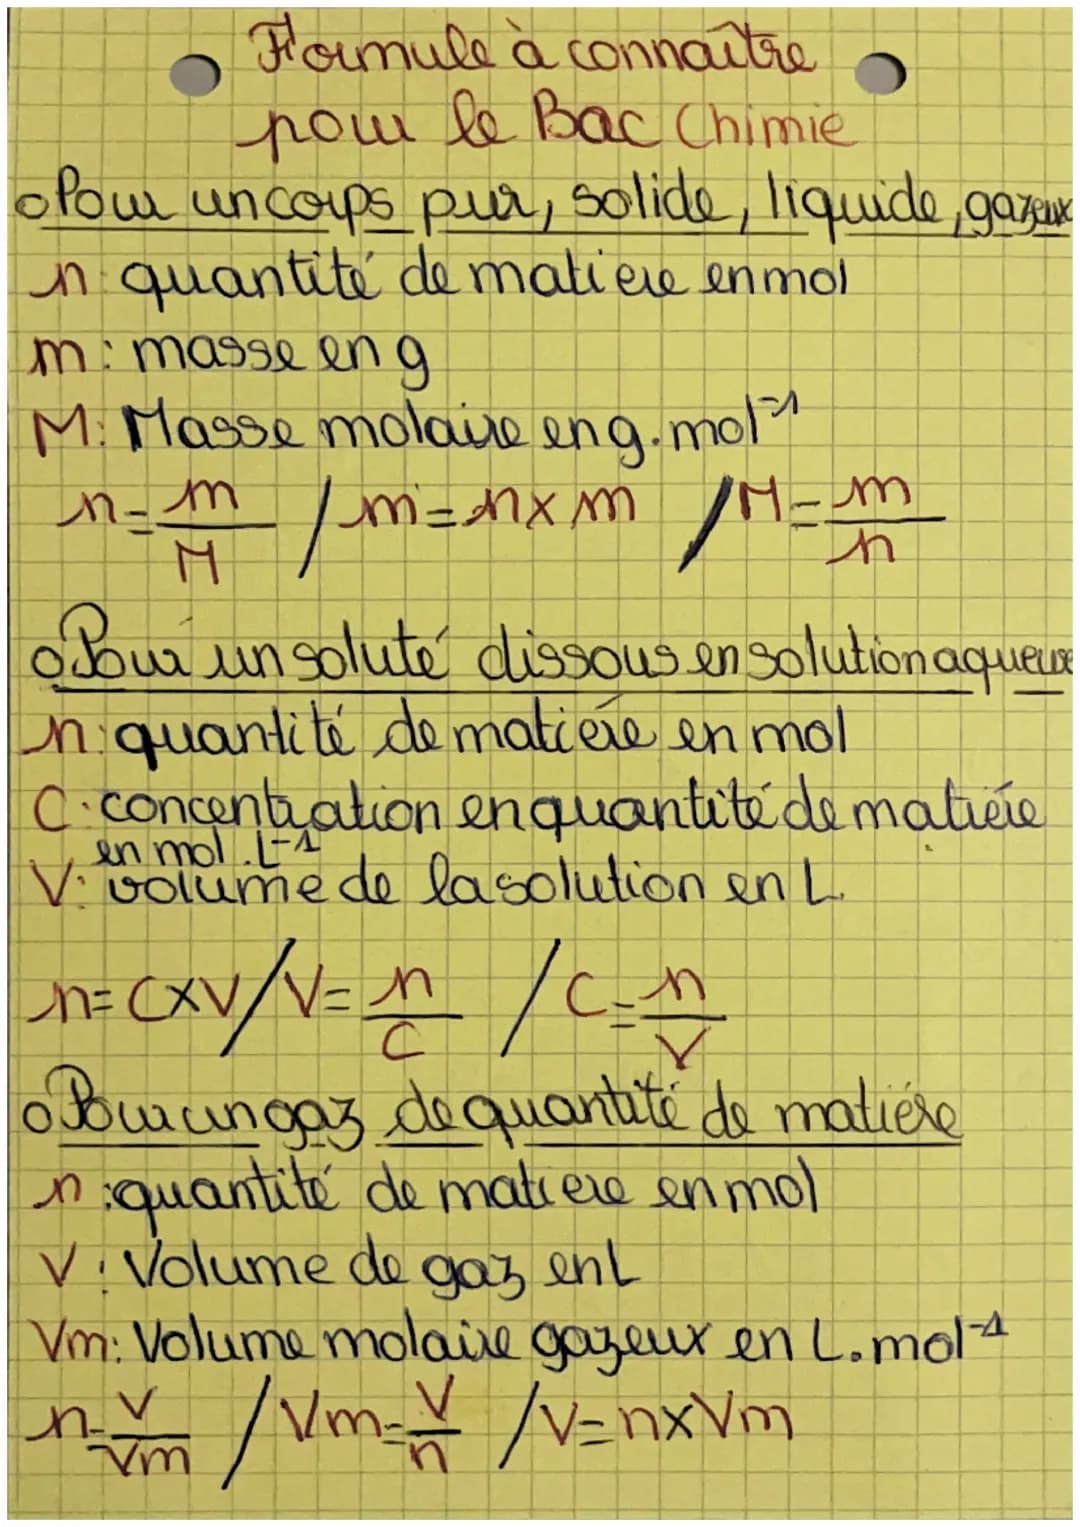 Formule à connaître
pour le Bac Chimie
o Pour un corps pur, solide, liquide, gazeux
n: quantité de matiere en mol
m: masse en g
M: Masse molaire en g.mol⁻¹
n = m/M / m = n x m / M = m/n
o Pour un soluté dissous en solution aqueuse
n: quantité de matière en mol
C: concentration en quantité de matière
en mol.L⁻¹
V: volume de la solution en L.
n = C x V / V = n/C / C = n/V
o Pour un gaz de quantité de matière
n: quantité de matiere en mol
V: Volume de gaz en L
Vm: Volume molaire gazeux en L.mol⁻¹
n = V/Vm / Vm = V/n / V = n x Vm